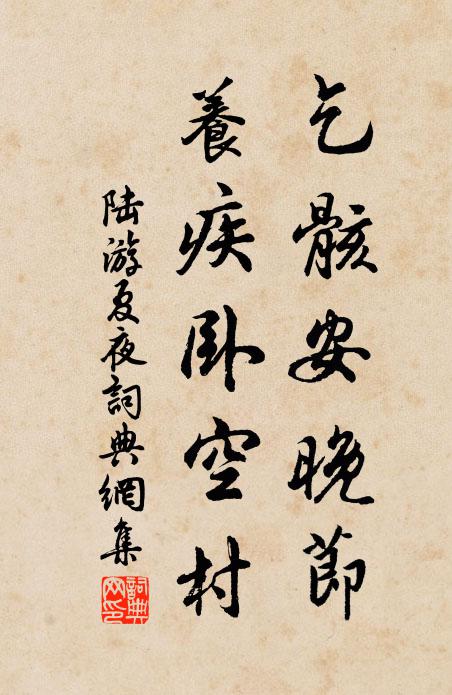 乞骸安晚節
養疾卧空村
陸游夏夜詞典網集
詞典網印